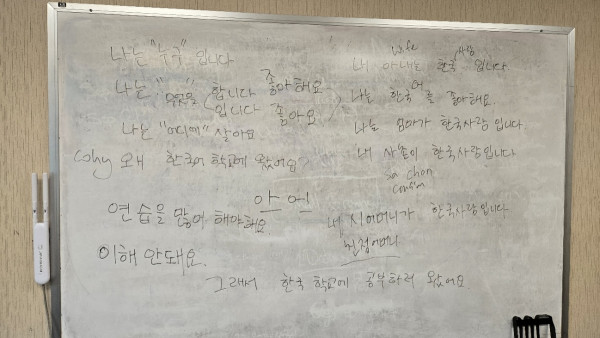 나는 "누구" 입니다
나는 "무엇을" (합니다 좋아해요
입니다 좋아요)
나는 "어디에" 살아요
Why 왜 한국어 학교에 왔어요?
안 언
연습을 많이 해야해요
이해 안돼요.
wife 사람
내 아내는 한국 입니다
나는 한국어를 좋아해요.
나는 엄마가 한국사람 입니다
내 사촌이 한국사람입니다
Sa chon
cousin
내 시어머니가 한국사람입니다
친정어머니
그래서 한국 학교에 공부하러 왔어요